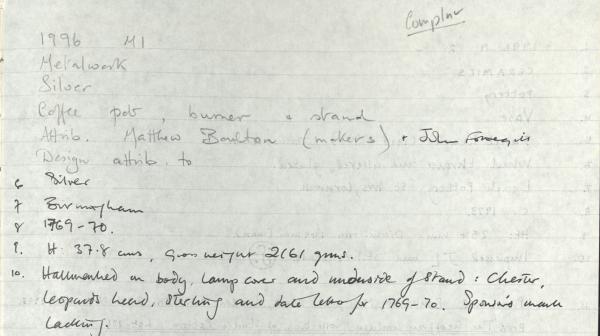 Complete
1996 M1
Metalwork
Silver
Coffee pot, burner & stand
Attrib. Matthew Boulton (makers) & John Fothergill
Design attrib. to
6 Silver
7 Birmingham
8 1769-70.
9. H. 37.8 cms, Gross weight 2161 gms.
10. Hallmarked on body, lamp cover and underside of stand: Chester,
leopards head, sterling and date letter for 1769-70. Sponsor's mark
lacking.